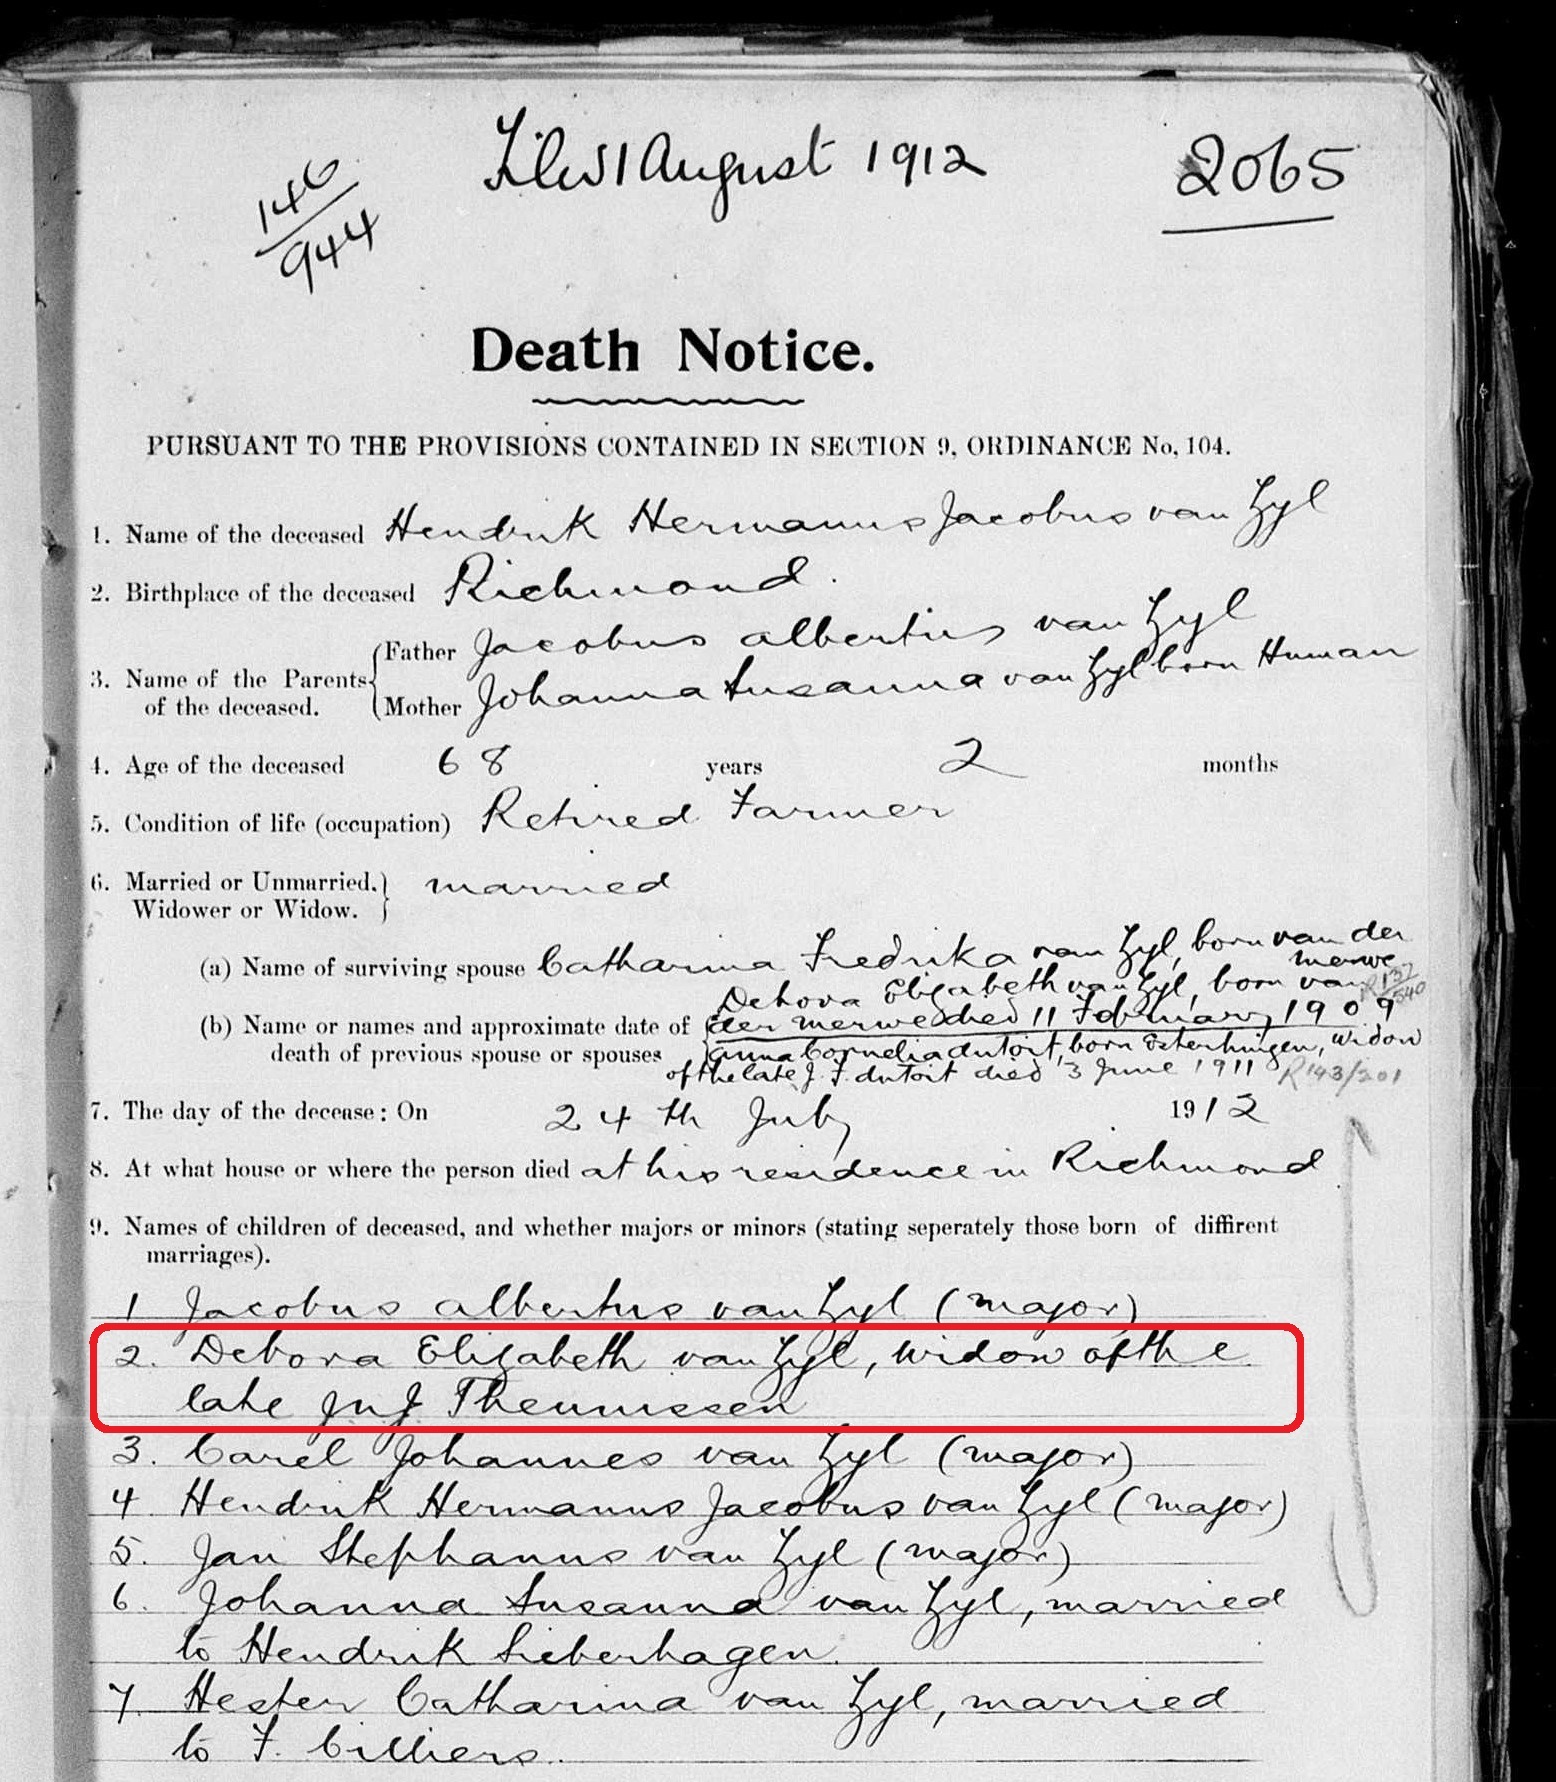 146
944
Filed 1 August 1912
2065
Death Notice.
PURSUANT TO THE PROVISIONS CONTAINED IN SECTION 9, ORDINANCE No, 104.
1. Name of the deceased Hendrik Hermanus Jacobus van Zyl
2. Birthplace of the deceased Richmond.
3. Name of the Parents of the deceased.
Father Jacobus albertus van Zyl
Mother Johanna Susanna van Zyl born Human
4. Age of the deceased 68 years 2 months
5. Condition of life (occupation) Retired Farmer
6. Married or Unmarried. married
Widower or Widow.
(a) Name of surviving spouse Catharina Fredrika van Zyl, born van der
merwe
(b) Name or names and approximate date of
death of previous spouse or spouses
Debora Elizabeth van Zyl, born van
der merwe died 11 February 1909
R 137/540
anna Cornelia du toit, born Esterhuizen, widow
of the late J. F. du toit died 3 June 1911 R143/201
7. The day of the decease: On 24th July 1912
8. At what house or where the person died at his residence in Richmond
9. Names of children of deceased, and whether majors or minors (stating seperately those born of diffirent
marriages).
1 Jacobus albertus van Zyl (major)
2. Debora Elizabeth van Zyl, widow of the
late Theunissen
3. Carel Johannes van Zyl (major)
4 Hendrik Hermanus Jacobus van Zyl (major)
5. Jan Stephanus van Zyl (major)
6. Johanna Susanna van Zyl, married
to Hendrik Lieberhagen.
7. Hester Catharina van Zyl, married
to F. Cilliers.